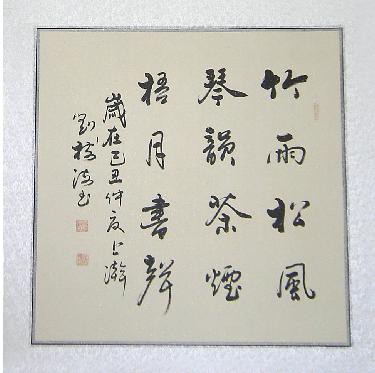 竹雨松風
琴韻茶煙
梧月書聲
歲在己丑仲夏上澣
劉